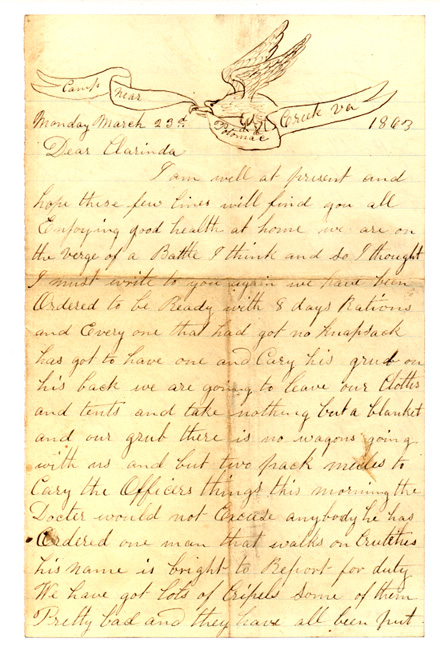 Camp near Potomac Creek Va
Monday March 23rd 1863
Dear Clarinda
I am well at present and
hope these few lines will find you all
Enjoying good health at home we are on
the verge of a Battle I think and so I thought
I must write to you again we have been
Ordered to be Ready with 8 days Rations
and Every one that had got no Knapsack
has got to have one and Cary his grub on
his back we are going to leave our Cloths
and tents and take nothing but a blanket
and our grub there is no wagons going
with us and but two pack mules to
Cary the Officers things this morning the
Docter would not Excuse anybody he has
Ordered one man that walks on Crutches
his name is bright to Report for duty
We have got lots of Cripels some of them
Pretty bad and they have all been put